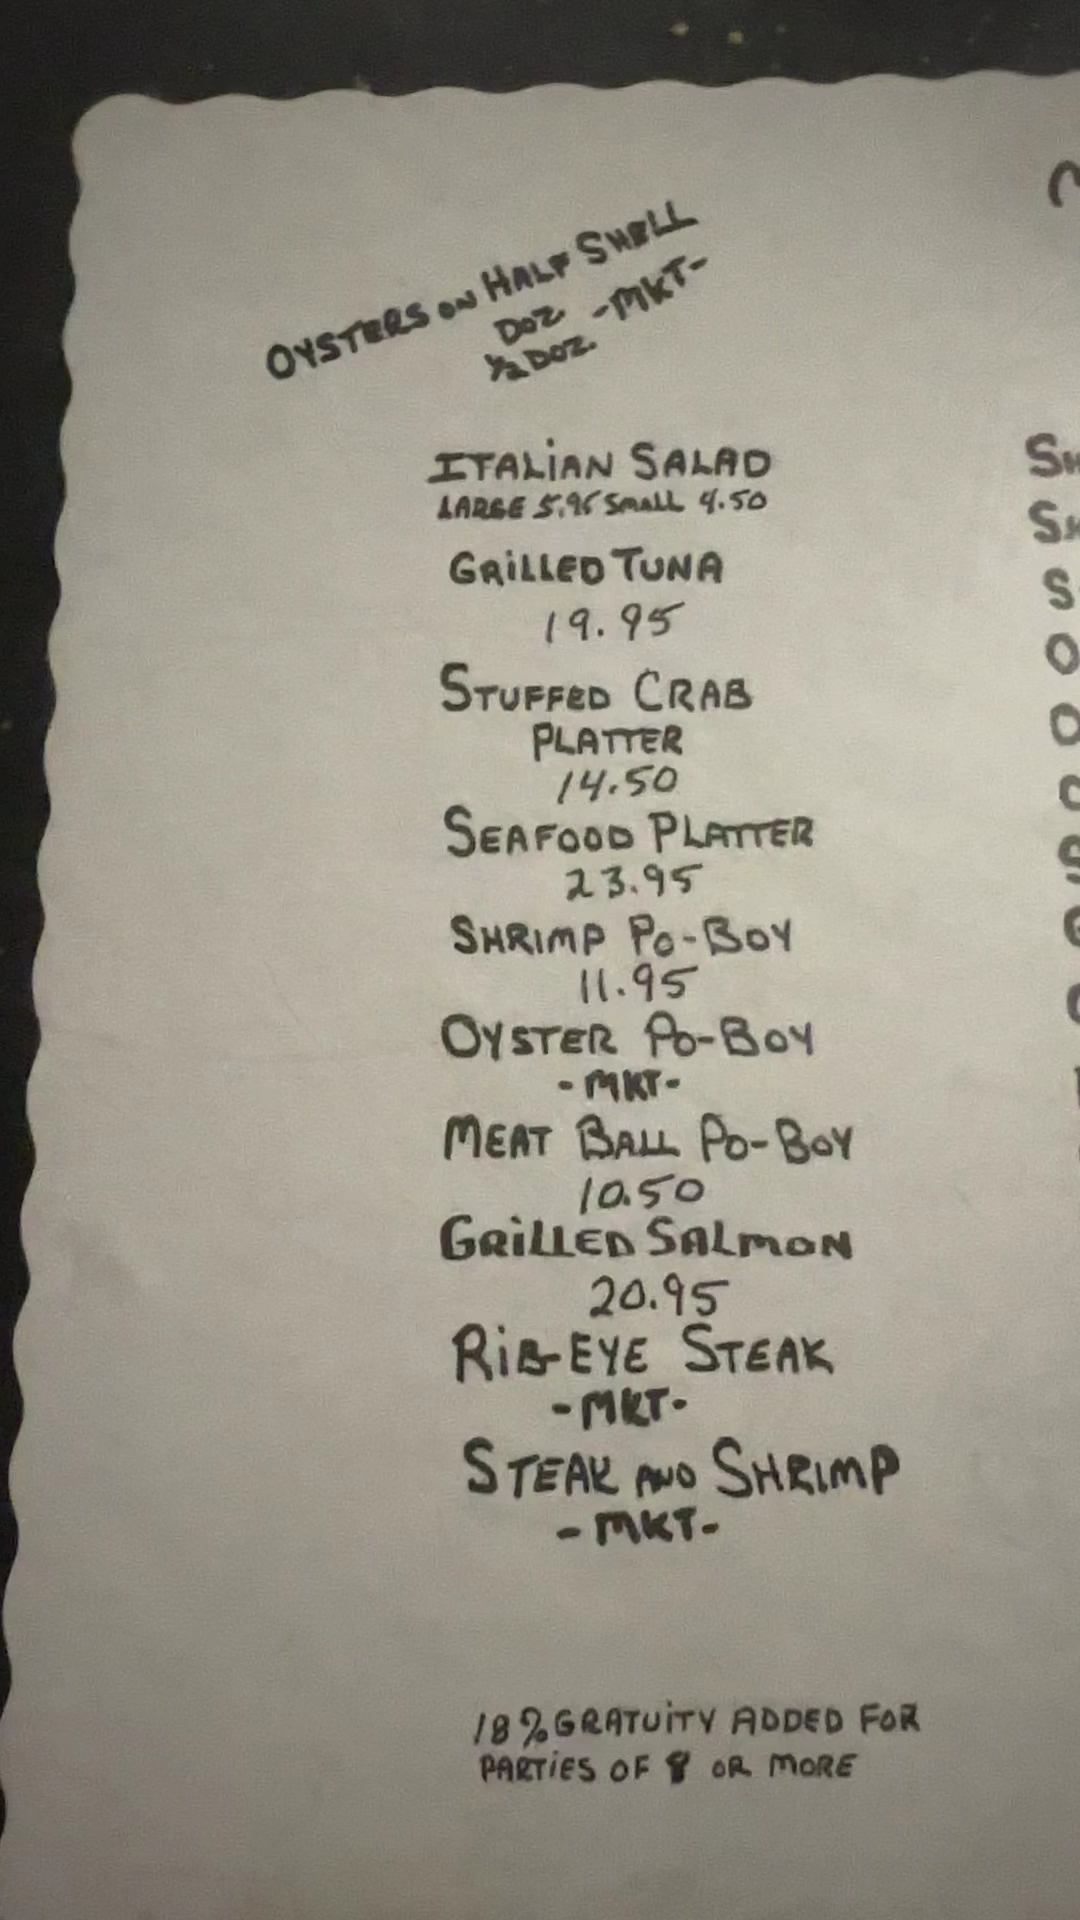 OYSTERS ON HALF SHELL
DOZ -MKT-
½ DOZ.
ITALIAN SALAD
LARGE 5.95 SMALL 4.50
GRILLED TUNA
19.95
STUFFED CRAB
PLATTER
14.50
SEAFOOD PLATTER
23.95
SHRIMP PO-BOY
11.95
OYSTER PO-BOY
-MKT-
MEAT BALL PO-BOY
10.50
GRILLED SALMON
20.95
RIB-EYE STEAK
-MKT-
STEAK AND SHRIMP
-MKT-
18% GRATUITY ADDED FOR
PARTIES OF 8 OR MORE